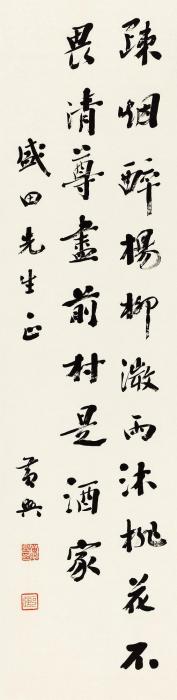 疎烟醉楊柳微雨沐桃花不
畏清尊盡前村是酒家
盛田先生正
黄興